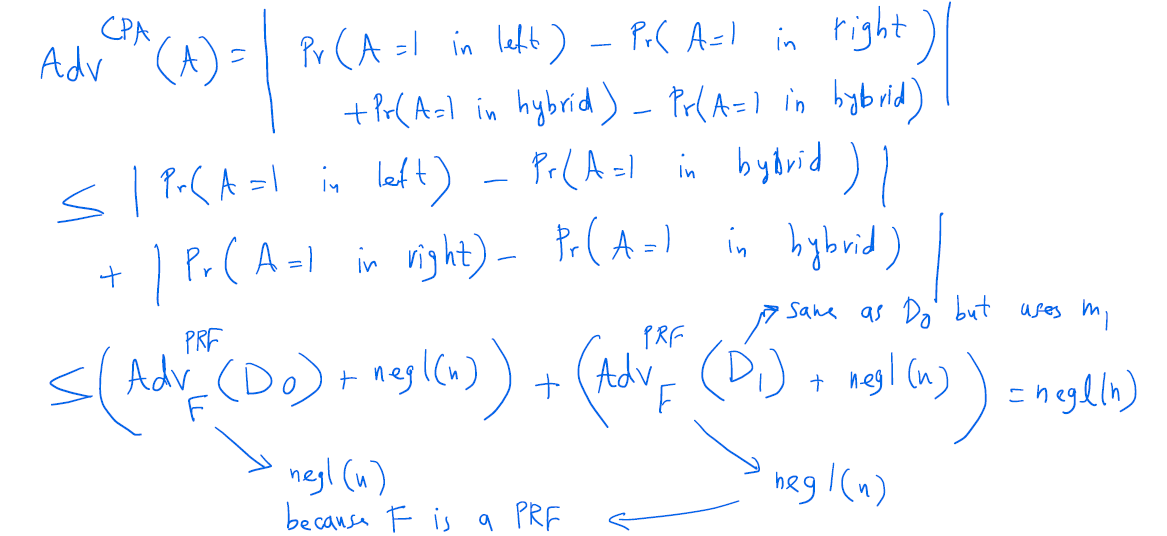 Adv^CPA (A) = | Pr(A=1 in left) - Pr(A=1 in right)
+ Pr(A=1 in hybrid) - Pr(A=1 in hybrid) |
≤ | Pr(A=1 in left) - Pr(A=1 in hybrid) |
+ | Pr(A=1 in right) - Pr(A=1 in hybrid) |
→ same as D_0 but uses m_1
≤ (Adv_F^PRF (D_0) + negl(n)) + (Adv_F^PRF (D_1) + negl(n)) = negl(n)
negl(n) negl(n)
because F is a PRF